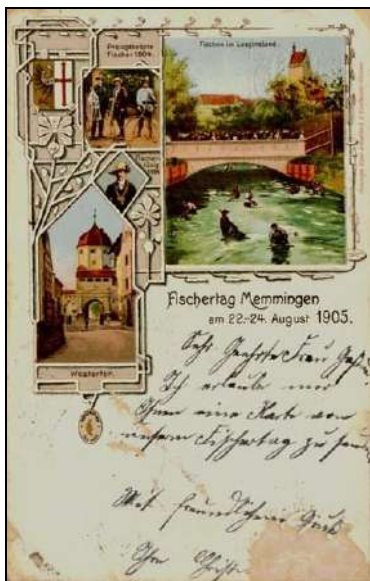 Preisgekrönte
Fischer 1904.
Fischen im Luginsland.
Fischer-
könig
Westertor.
Fischertag Memmingen
am 22.-24. August 1905.
Sehr Geehrte Frau
Ich erlaube mir
Ihnen eine Karte von
unserm Fischertag zu
Mit freundlichem Gruß
Ihr